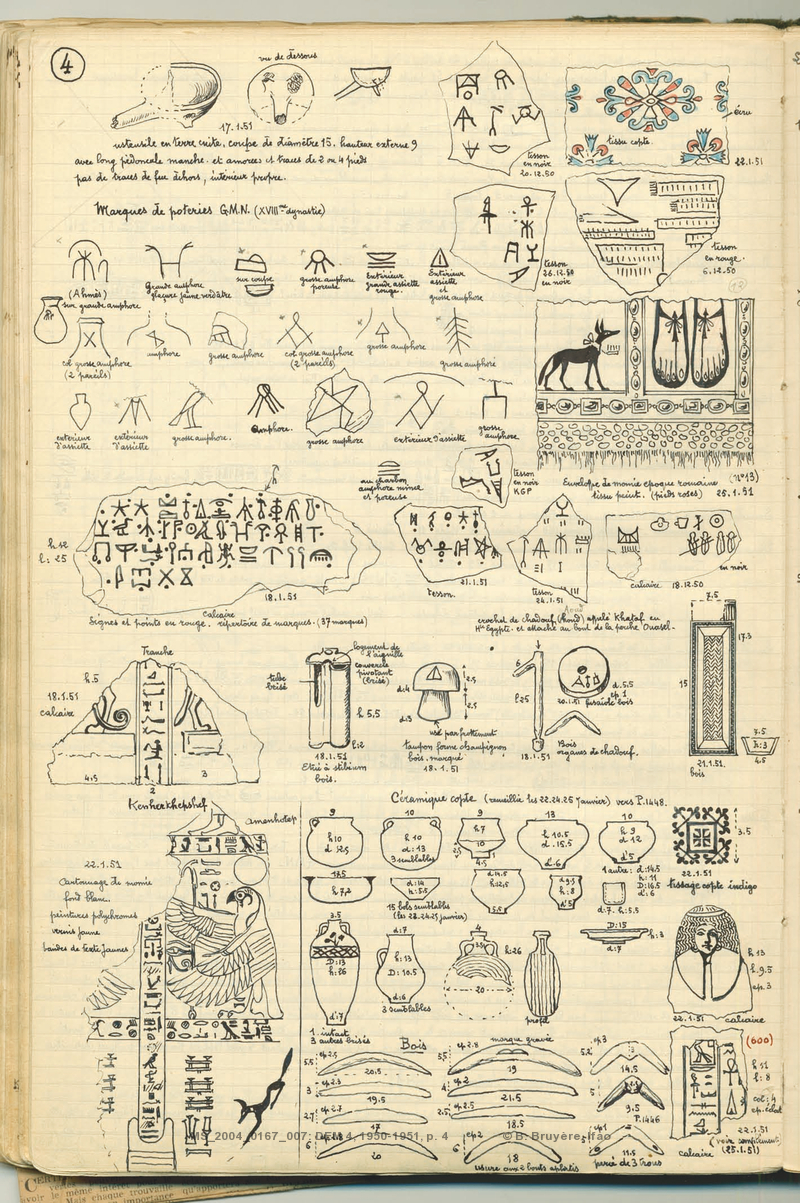 4
vu de dessous
17.1.51
ustensile en terre cuite, coupe de diamètre 15. hauteur externe 9
avec long pédoncule manche. et amorces et traces de 2 ou 4 pieds
pas de traces de feu dehors, intérieur propre.
tesson
en noir
20.12.50
écru
tissu copte
22.1.51
Marques de poteries G.M.N. (XVIIIme dynastie)
tesson
26.12.50
en noir
tesson
en rouge.
6.12.50
(12)
(Ahmès)
sur grande amphore
Grande amphore
glaçure jaune verdâtre
sur coupe
grosse amphore
poreuse
Extérieur
grande assiette
rouge.
Extérieur
assiette
et
grosse amphore
col grosse amphore
(2 pareils)
amphore
grosse amphore
col grosse amphore
(2 pareils)
grosse amphore
grosse amphore
extérieur
d'assiette
extérieur
d'assiette
grosse amphore.
Amphore.
grosse amphore
extérieur d'assiette
grosse
amphore
au charbon
amphore mince
et poreuse
tesson
en noir
KGP
Envelope de momie epoque romaine (n°13)
tissu peint. (pieds roses) 25.1.51
h 12
l: 25
18.1.51
calcaire
Signes et points en rouge. répertoire de marques. (37 marques)
21.1.51
tesson.
tesson
24.1.51
en noir
calcaire 18.12.50
crochet de chadouf (Aoud) apulé Khataf en
Hte Egypte. et attaché au bout de la perche Ouasel.
Tranche
h.5
18.1.51
calcaire
4.5
2
3
tube
brisé
logement de
l'aiguille
couvercle
pivotant
(brisé)
h 5.5
l:2
18.1.51
Etui à stibium
bois.
d:4
2.5
2.5
d:3
usé par frottement
tampon forme champignon
bois. marqué
18.1.51
6
l.25
18.1.51
d.5.5
ep.1
20.1.51 fusaïole bois
Bois
organes de chadouf.
7.5
17.3
15
7.5
h:3
4.5
21.1.51.
bois
Kenherkhepshef
amenhotep
22.1.51
Cartonnage de momie
fond blanc.
peintures polychromes
vernis jaune
bandes de texte jaunes
Céramique copte (recueillie les 22.24.25 Janvier) vers P.1448.
9
h10
d 12,5
10
h 10
d:13
3 semblables
9
h7
10
2.5
4.5
13
h 10.5
d.15.5
d.6
10
h 9
d 12
d'5
3.5
22.1.51
tissage copte indigo
12.5
h 7,2
d:14
h:5.5
15 bols semblables
(les 22.24.25 janvier)
d:14.5
h:12.5
5.5
d:9.5
h:8
d'5
1 autre: d:14.5
h:11
D:16.5
d':6
d:7. h:5.5
3.5
D:13
h:26
d':7
1. intact
3 autres brisés
d:7
h:13
D:10.5
d:6
3 semblables
4
h:26
20
profil
D:15
h:3
d:7
h 13
l.9.5
ep.3
22.1.51 calcaire
Bois
marque gravée
5.5
ep 2.5
20.5
3.5
ep 2.8
19
5.2
ep3
14.5
3
ep 2.3
19.5
4
ep2
21.5
5
9.5
P.1446
2.7
ep 2.7
17
2.5
18.5
6
20
6
ep2
18
usure aux 2 bouts aplatis
6
ep1
11.5
percé de 3 trous
(600)
h 11
l: 8
col: 4
ep.éclat
22.1.51
calcaire
(voir complément)
(25.1.51)
MS_2004_0167_007: DEM 4, 1950-1951, p. 4
© B. Bruyère, Ifao